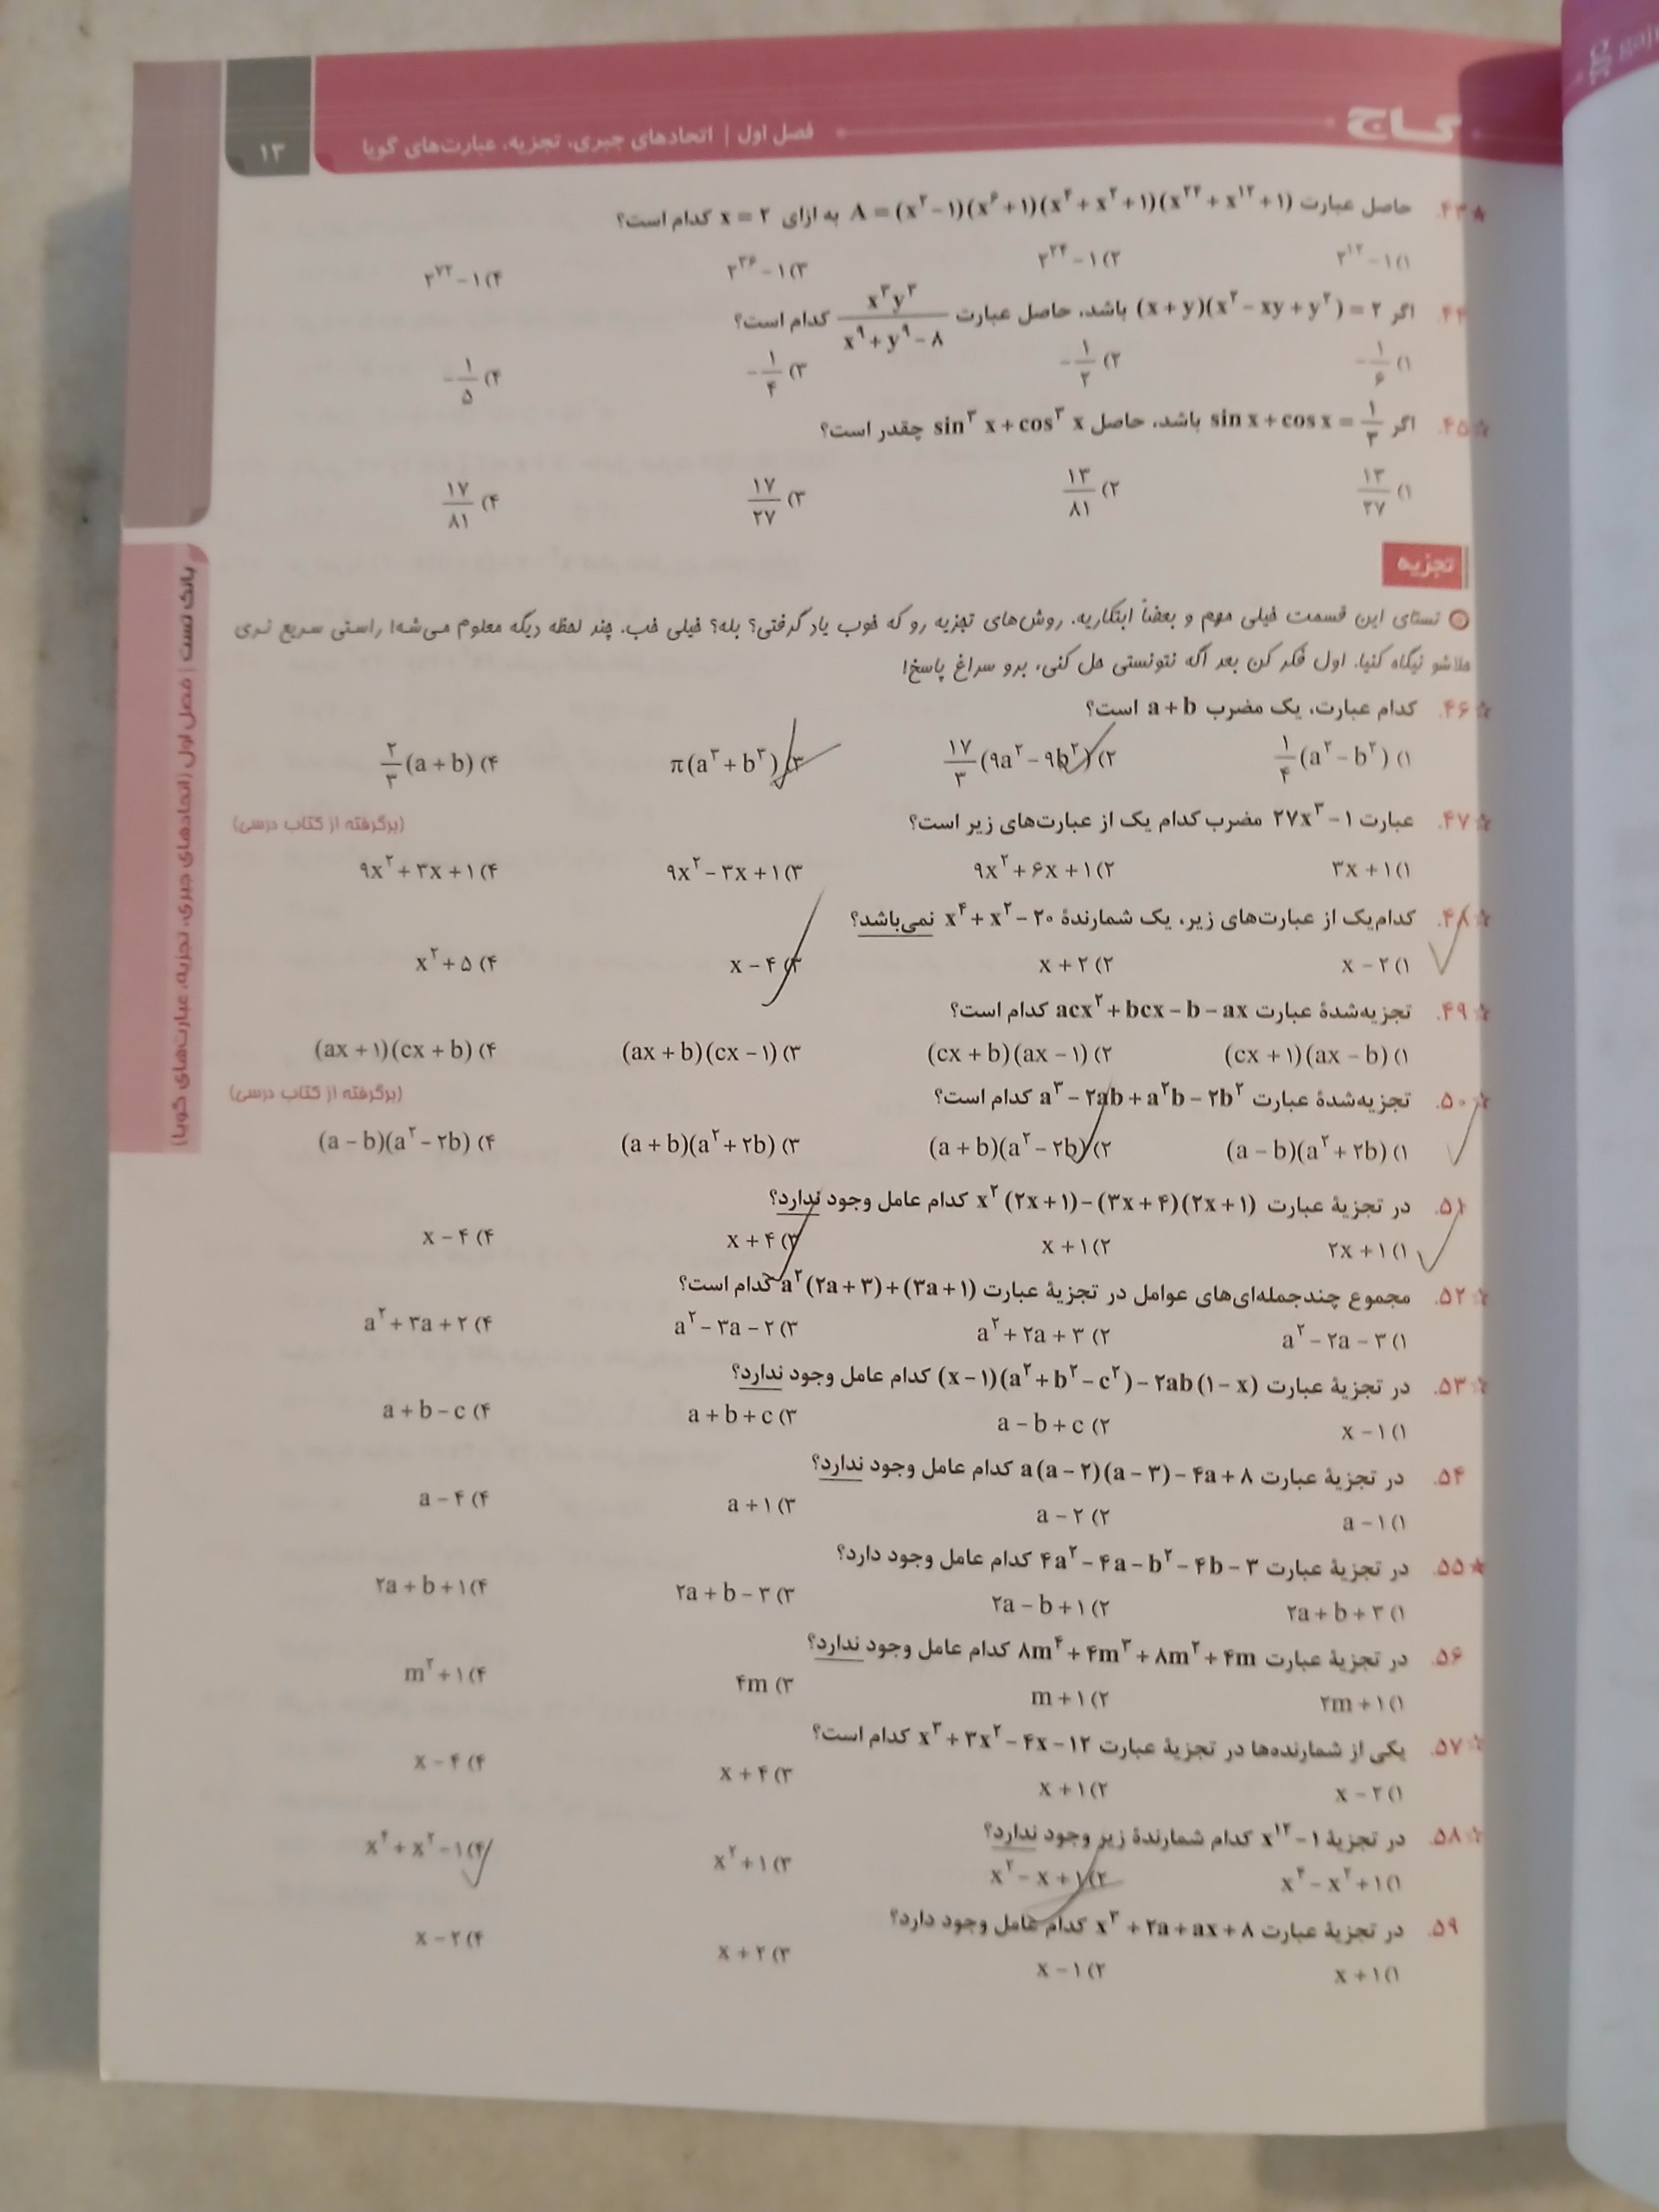 گاج
فصل اول | اتحادهای جبری، تجزیه، عبارت‌های گویا
۱۳
۴۳. حاصل عبارت A = (x² − ۱)(x⁶ + ۱)(x⁴ + x² + ۱)(x²⁴ + x¹² + ۱) به ازای x = ۲ کدام است؟
۱) ۲¹² − ۱ ۲) ۲²⁴ − ۱ ۳) ۲³⁶ − ۱ ۴) ۲⁷² − ۱
۴۴. اگر (x + y)(x² − xy + y²) = ۲ باشد، حاصل عبارت x³y³/(x⁹ + y⁹ − ۸) کدام است؟
۱) −۱/۶ ۲) −۱/۲ ۳) −۱/۴ ۴) −۱/۵
۴۵. اگر sin x + cos x = ۱/۳ باشد، حاصل sin³ x + cos³ x چقدر است؟
۱) ۱۳/۲۷ ۲) ۱۳/۸۱ ۳) ۱۷/۲۷ ۴) ۱۷/۸۱
تجزیه
تستای این قسمت خیلی مهم و بعضاً ابتکاریه. روش‌های تجزیه رو که خوب یاد گرفتی؟ بله؟ خیلی خب. چند لحظه دیگه معلوم می‌شه! راستی سریع نری
حلاشو نیگاه کنیا. اول فکر کن بعد اگه نتونستی حل کنی، برو سراغ پاسخ!
۴۶. کدام عبارت، یک مضرب a + b است؟
۱) ۱/۴(a² − b²) ۲) ۱۷/۳(۹a² − ۹b²) ۳) π(a³ + b³) ۴) ۲/۳(a + b)
۴۷. عبارت ۲۷x³ − ۱ مضرب کدام یک از عبارت‌های زیر است؟ (برگرفته از کتاب درسی)
۱) ۳x + ۱ ۲) ۹x² + ۶x + ۱ ۳) ۹x² − ۳x + ۱ ۴) ۹x² + ۳x + ۱
۴۸. کدام‌یک از عبارت‌های زیر، یک شمارندهٔ x⁴ + x² − ۲۰ نمی‌باشد؟
۱) x − ۲ ۲) x + ۲ ۳) x − ۴ ۴) x² + ۵
۴۹. تجزیه‌شدهٔ عبارت acx² + bcx − b − ax کدام است؟
۱) (cx + ۱)(ax − b) ۲) (cx + b)(ax − ۱) ۳) (ax + b)(cx − ۱) ۴) (ax + ۱)(cx + b)
۵۰. تجزیه‌شدهٔ عبارت a³ − ۲ab + a²b − ۲b² کدام است؟ (برگرفته از کتاب درسی)
۱) (a − b)(a² + ۲b) ۲) (a + b)(a² − ۲b) ۳) (a + b)(a² + ۲b) ۴) (a − b)(a² − ۲b)
۵۱. در تجزیهٔ عبارت x² (۲x + ۱) − (۳x + ۴)(۲x + ۱) کدام عامل وجود ندارد؟
۱) ۲x + ۱ ۲) x + ۱ ۳) x + ۴ ۴) x − ۴
۵۲. مجموع چندجمله‌ای‌های عوامل در تجزیهٔ عبارت a² (۲a + ۳) + (۳a + ۱) کدام است؟
۱) a² − ۲a − ۳ ۲) a² + ۲a + ۳ ۳) a² − ۳a − ۲ ۴) a² + ۳a + ۲
۵۳. در تجزیهٔ عبارت (x − ۱)(a² + b² − c²) − ۲ab (۱ − x) کدام عامل وجود ندارد؟
۱) x − ۱ ۲) a − b + c ۳) a + b + c ۴) a + b − c
۵۴. در تجزیهٔ عبارت a(a − ۲)(a − ۳) − ۴a + ۸ کدام عامل وجود ندارد؟
۱) a − ۱ ۲) a − ۲ ۳) a + ۱ ۴) a − ۴
۵۵. در تجزیهٔ عبارت ۴a² − ۴a − b² − ۴b − ۳ کدام عامل وجود دارد؟
۱) ۲a + b + ۳ ۲) ۲a − b + ۱ ۳) ۲a + b − ۳ ۴) ۲a + b + ۱
۵۶. در تجزیهٔ عبارت ۸m⁴ + ۴m³ + ۸m² + ۴m کدام عامل وجود ندارد؟
۱) ۲m + ۱ ۲) m + ۱ ۳) ۴m ۴) m² + ۱
۵۷. یکی از شمارنده‌ها در تجزیهٔ عبارت x³ + ۳x² − ۴x − ۱۲ کدام است؟
۱) x − ۲ ۲) x + ۱ ۳) x + ۴ ۴) x − ۴
۵۸. در تجزیهٔ x¹² − ۱ کدام شمارندهٔ زیر وجود ندارد؟
۱) x⁴ − x² + ۱ ۲) x² − x + ۱ ۳) x² + ۱ ۴) x⁴ + x² − ۱
۵۹. در تجزیهٔ عبارت x³ + ۲a + ax + ۸ کدام عامل وجود دارد؟
۱) x + ۱ ۲) x − ۱ ۳) x + ۲ ۴) x − ۲
بانک تست | فصل اول (اتحادهای جبری، تجزیه، عبارت‌های گویا)